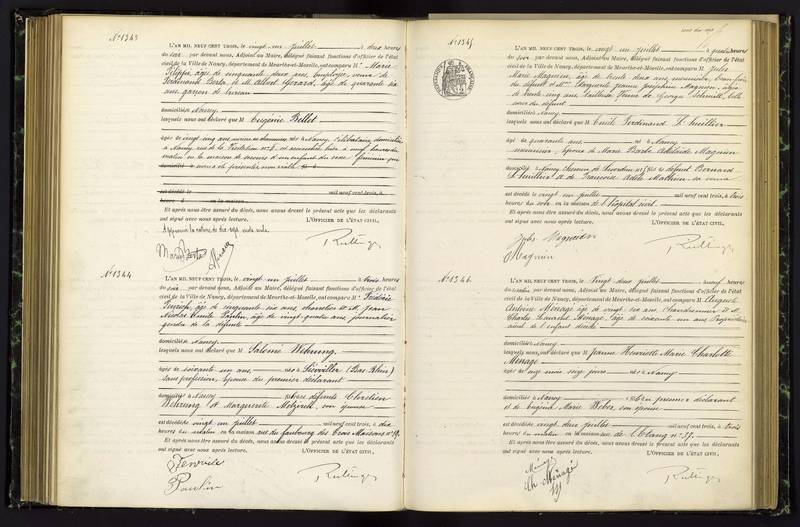 N° 1343
L'AN MIL NEUF CENT TROIS, le vingt-un juillet à deux heures
du soir par devant nous, Adjoint au Maire, délégué faisant fonctions d'officier de l'état
civil de la Ville de Nancy, département de Meurthe-et-Moselle, ont comparu M. Marie
âgée de cinquante deux ans, employée, veuve de
Ferdinand Berta, et M. Albert Gérard, âgé de quarante six
ans, garçon de bureau
domiciliés à Nancy
lesquels nous ont déclaré que M Eugénie Bellet
âgée de vingt-cinq ans, née à Nancy, célibataire, domiciliée
à Nancy, rue de la n° 8, est accouchée hier à neuf heures du
matin en la maison de secours d'un enfant du sexe féminin qui
nous a été présenté sans vie
est décédé le mil neuf cent trois, à
heures d en la maison
Et après nous être assuré du décès, nous avons dressé le présent acte que les déclarants
ont signé avec nous après lecture. L'OFFICIER DE L'ÉTAT CIVIL,
Approuvé la rature de dix-sept mots nuls.
N° 1344
L'AN MIL NEUF CENT TROIS, le vingt-un juillet à trois heures
du soir par devant nous, Adjoint au Maire, délégué faisant fonctions d'officier de l'état
civil de la Ville de Nancy, département de Meurthe-et-Moselle, ont comparu M. Frédéric
âgé de cinquante six ans, charretier et M. Jean
Nicolas Emile Paulin, âgé de vingt-quatre ans, journalier
gendre de la défunte
domiciliés à Nancy
lesquels nous ont déclaré que M Salomé Wehrung
âgée de soixante-un ans née à (Bas-Rhin)
sans profession, épouse du premier déclarant
domiciliée à Nancy fille des défunts Chrétien
Wehrung et Marguerite son épouse
est décédée vingt-un juillet mil neuf cent trois, à dix
heures du matin en la maison rue du faubourg des Trois Maisons n° 19
Et après nous être assuré du décès, nous avons dressé le présent acte que les déclarants
ont signé avec nous après lecture. L'OFFICIER DE L'ÉTAT CIVIL,
Paulin
N° 1345
L'AN MIL NEUF CENT TROIS, le vingt-un juillet à quatre heures
du soir par devant nous, Adjoint au Maire, délégué faisant fonctions d'officier de l'état
civil de la Ville de Nancy, département de Meurthe-et-Moselle, ont comparu M. Jules
Marie Magnien, âgé de trente deux ans, menuisier, beau-frère
du défunt et Marguerite Jeanne Joséphine Magnien, âgée
de trente-cinq ans, tailleuse, veuve de George Schmitt, belle
sœur du défunt
domiciliés à Nancy
lesquels nous ont déclaré que M Emile Ferdinand Lhuillier
âgé de quarante ans né à Nancy
menuisier, époux de Marie Barbe Adélaïde Magnien
domicilié à Nancy, fils de défunt Bernard
Lhuillier et de Françoise Adèle Mathieu sa veuve
est décédé le vingt-un juillet mil neuf cent trois, à trois
heures du soir en la maison de l'hôpital civil
Et après nous être assuré du décès, nous avons dressé le présent acte que les déclarants
ont signé avec nous après lecture. L'OFFICIER DE L'ÉTAT CIVIL,
Jules Magnien
Magnien
N° 1346
L'AN MIL NEUF CENT TROIS, le vingt deux juillet à neuf heures
du matin par devant nous, Adjoint au Maire, délégué faisant fonctions d'officier de l'état
civil de la Ville de Nancy, département de Meurthe-et-Moselle, ont comparu M. Auguste
Antoine Ménagé, âgé de vingt-six ans, chaudronnier et M.
Charles Laurent Ménagé, âgé de soixante un ans, propriétaire
aïeul de l'enfant décédé
domiciliés à Nancy
lesquels nous ont déclaré que M Jeanne Henriette Marie Charlotte
Ménagé
âgée de onze mois seize jours née à Nancy
domiciliée à Nancy fille du premier déclarant
et de Eugénie Marie Weber, son épouse
est décédée vingt deux juillet mil neuf cent trois, à trois
heures du matin en la maison rue de l'Étang n° 37
Et après nous être assuré du décès, nous avons dressé le présent acte que les déclarants
ont signé avec nous après lecture. L'OFFICIER DE L'ÉTAT CIVIL,
Ménagé
Ch. Ménagé